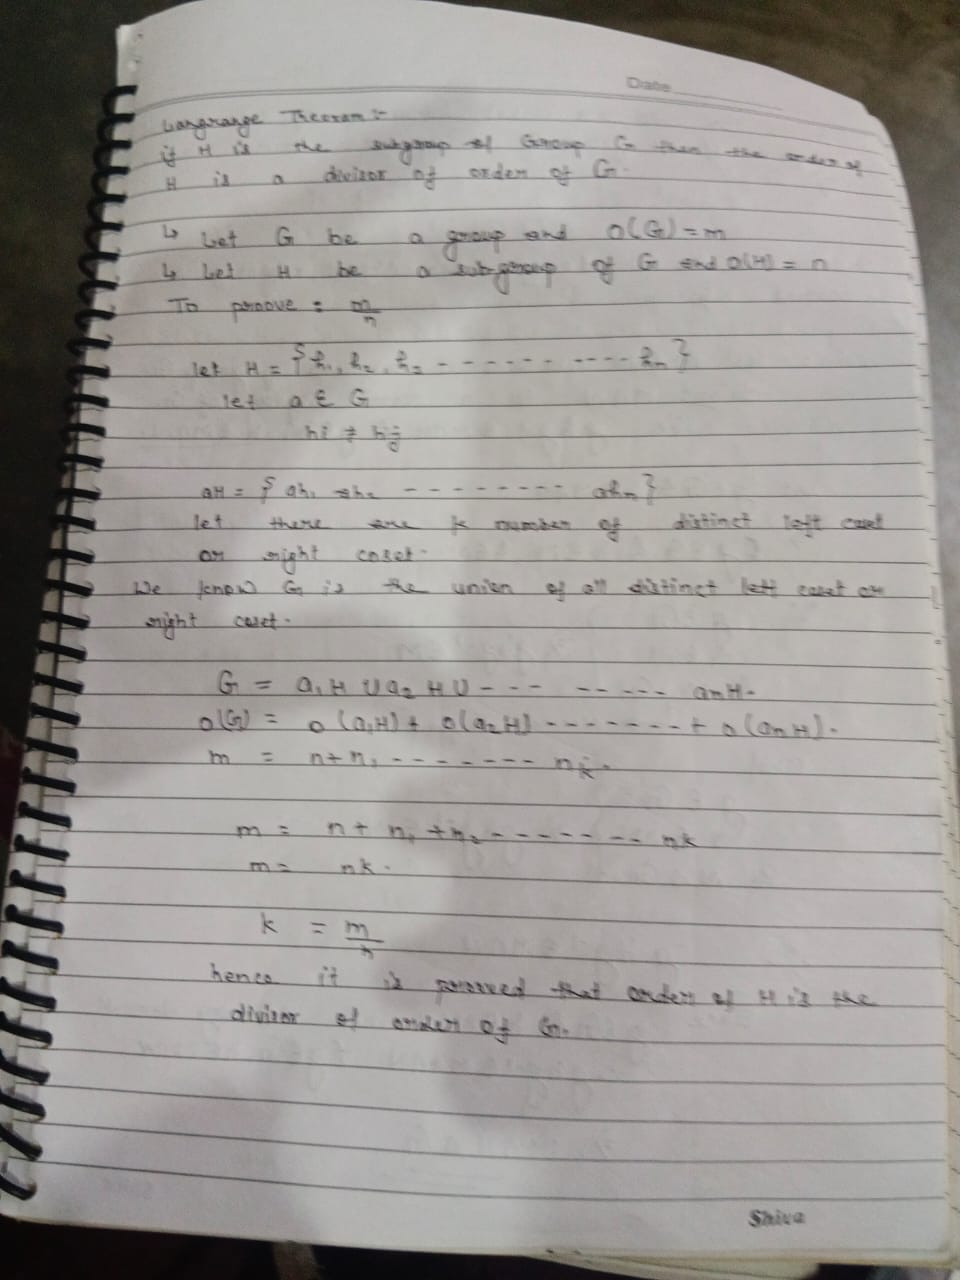 Date
Langrange Theoram :-
if H is the subgroup of Group G then the order of
H is a divisor of order of G.
↳ Let G be a group and O(G) = m
↳ Let H be a subgroup of G and O(H) = n
To proove : m/n
let H = { h₁, h₂, h₃ - - - - - - - - - - hn }
let a ∈ G
hi ≠ hj
aH = { ah₁ ah₂ - - - - - - - - - ahn }
let there are k number of distinct left coset
or right coset.
We know G is the union of all distinct left coset or
right coset.
G = a₁H ∪ a₂H ∪ - - - - - - - - anH.
O(G) = O(a₁H) + O(a₂H) - - - - - - - + O(anH).
m = n + n₁ - - - - - - - nk.
m = n + n₁ + n₂ - - - - - - - nk
m = nk.
k = m/n
hence it is prooved that order of H is the
divisor of order of G.
Shiva